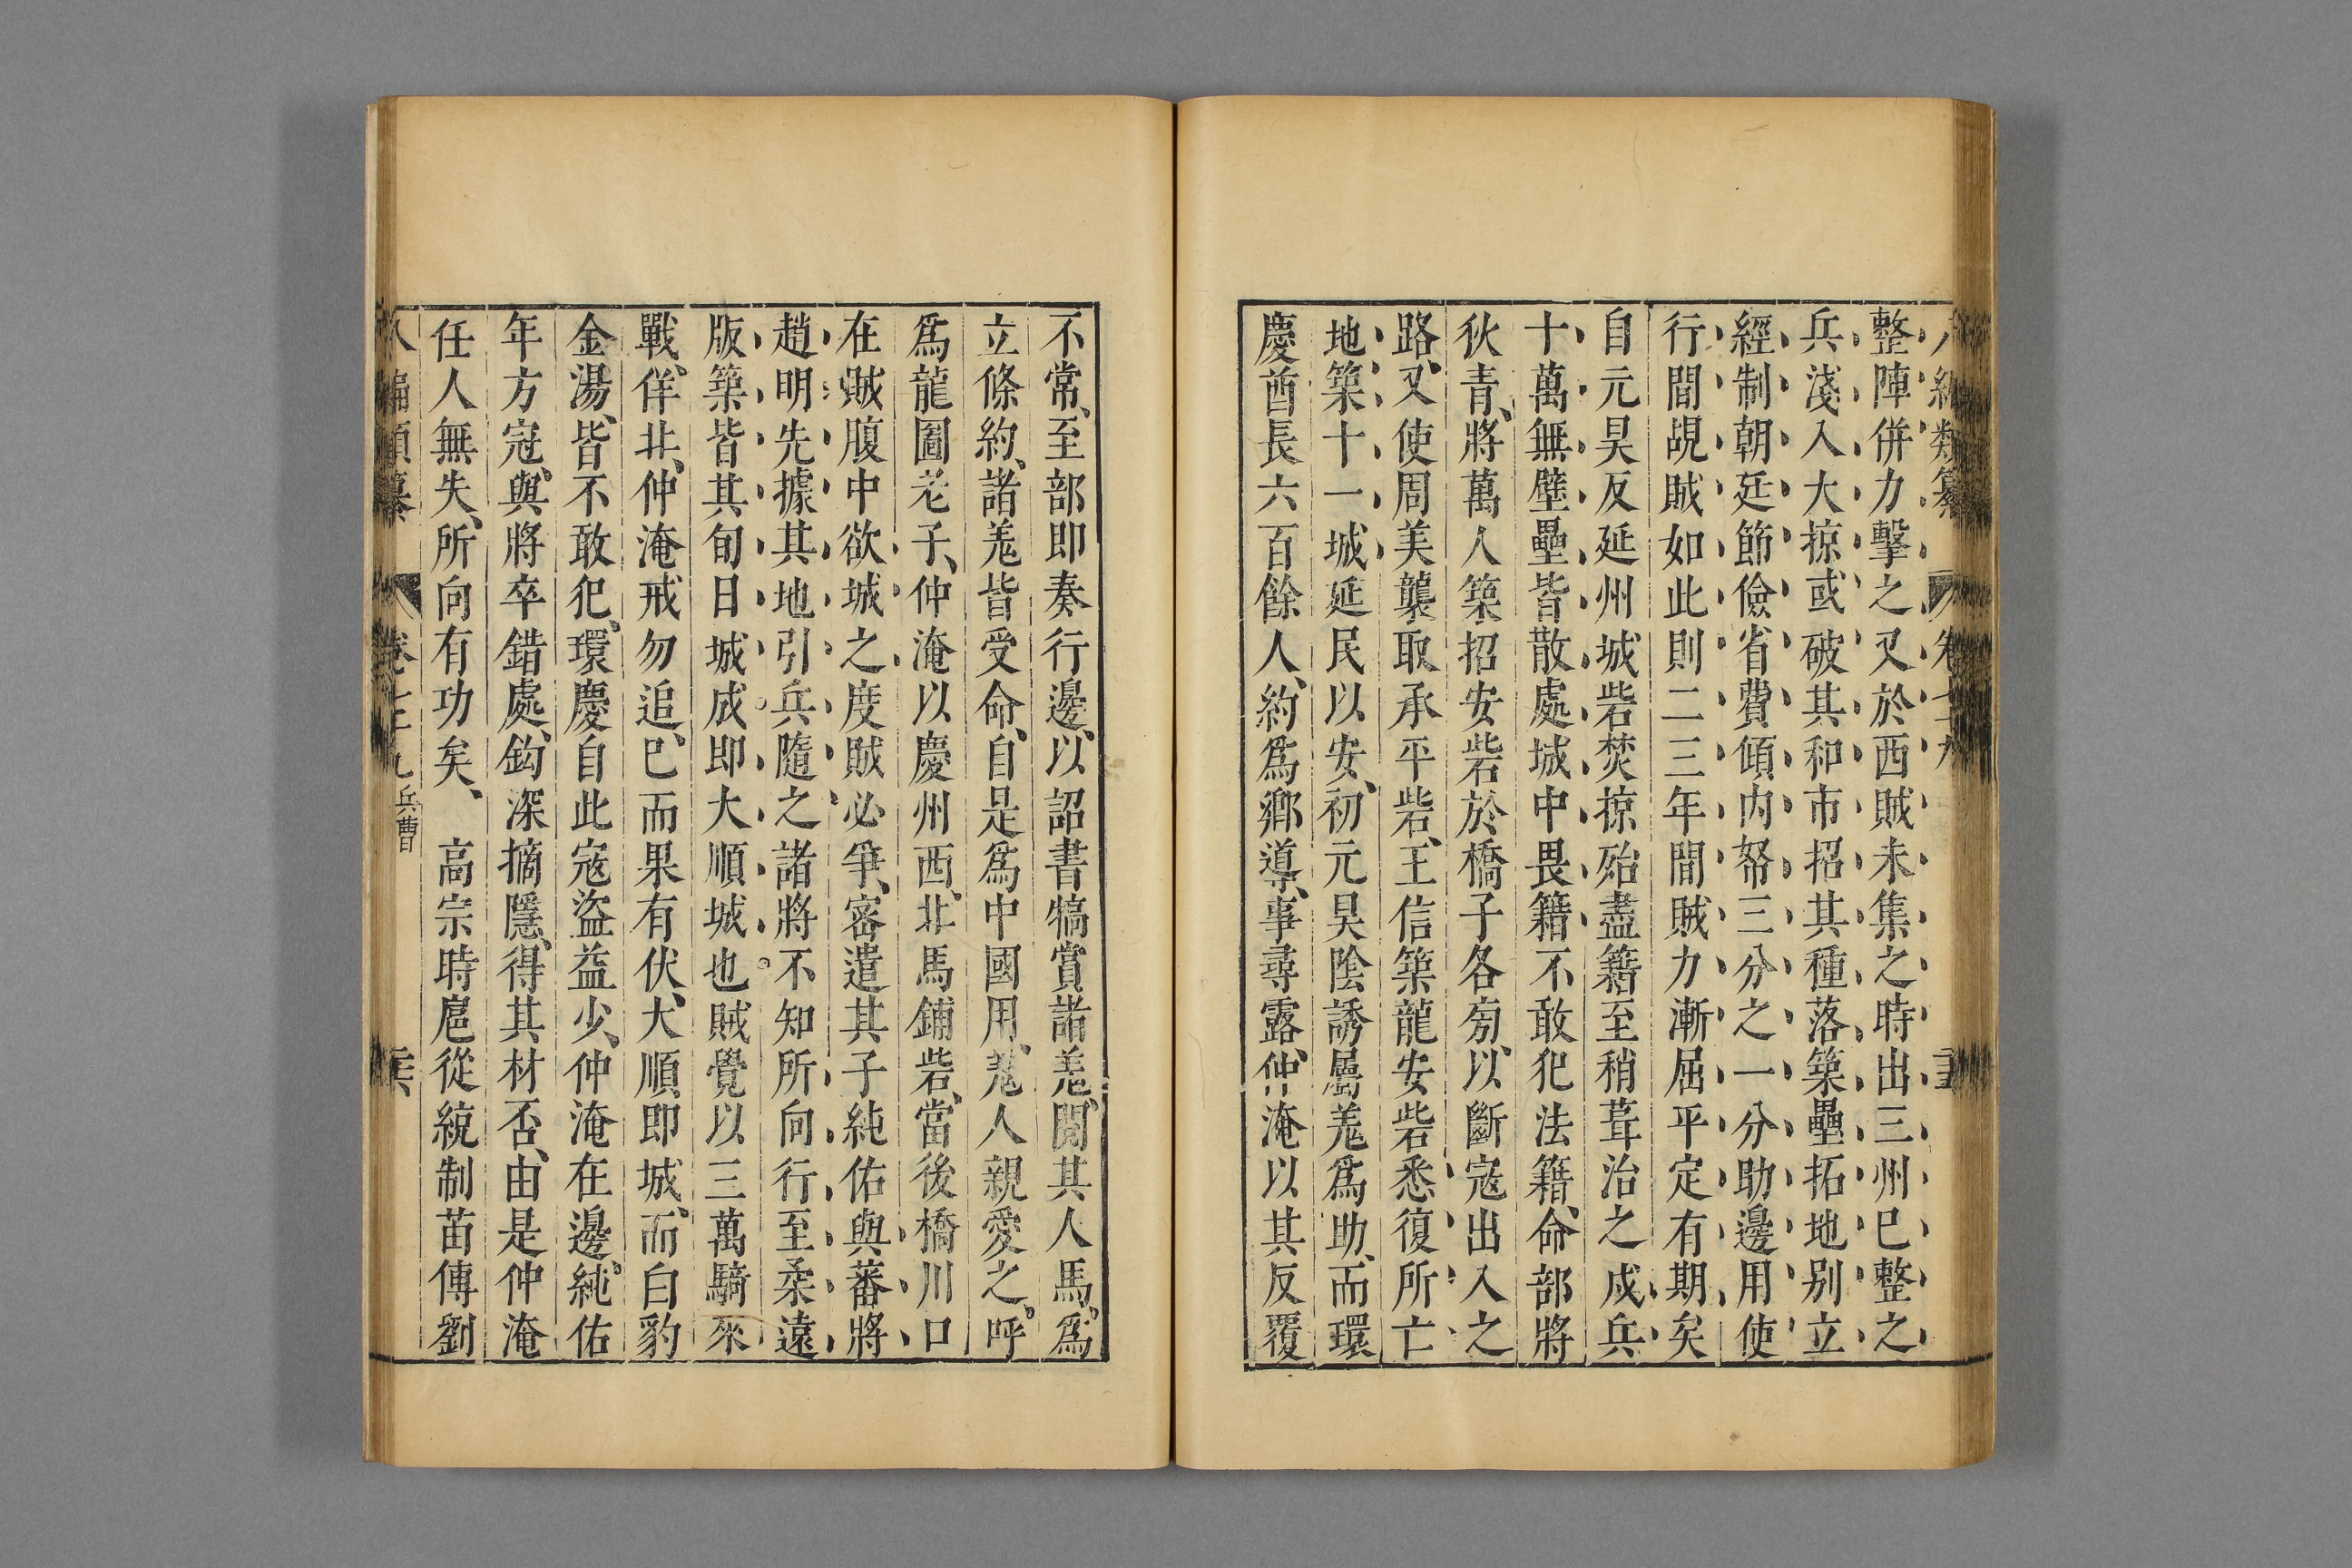 八編類纂 卷七十九
整陣併力擊之又於西賊未集之時出三州已整之
兵淺入大掠或破其和市招其種落築壘拓地别立
經制朝廷節儉省費傾内帑三分之一分助邊用使
行間覘賊如此則二三年間賊力漸屈平定有期矣
自元昊反延州城砦焚掠殆盡籍至稍葺治之戍兵
十萬無壁壘皆散處城中畏籍不敢犯法籍、命部將
狄青、將萬人築招安砦於橋子各旁、以斷寇出入之
路、又使周美襲取承平砦、王信築龍安砦悉復所亡
地築十一城延民以安、初元昊陰誘屬羗爲助、而環
慶酋長六百餘人、約爲鄉導、事尋露、仲淹以其反覆
不常、至部即奏行邊、以詔書犒賞諸羗、閱其人馬。爲
立條約、諸羗皆受命、自是爲中國用、羗人親愛之。呼
爲龍圖老子、仲淹以慶州西。北馬鋪砦、當後橋川口
在賊腹中欲城之度賊必爭、密遣其子純佑與蕃將
趙明先據其地引兵隨之諸將不知所向行至柔遠
版築皆其旬日城成即大順城也賊覺以三萬騎來
戰、佯北、仲淹戒勿追、已而果有伏、大順即城、而白豹
金湯、皆不敢犯、環慶自此寇盜益少、仲淹在邊。純佑
年方冠、與將卒錯處、鈎深摘隱、得其材否、由是仲淹
任人無失、所向有功矣、 高宗時扈從統制苗傅劉
八編類纂 卷七十九 兵曹